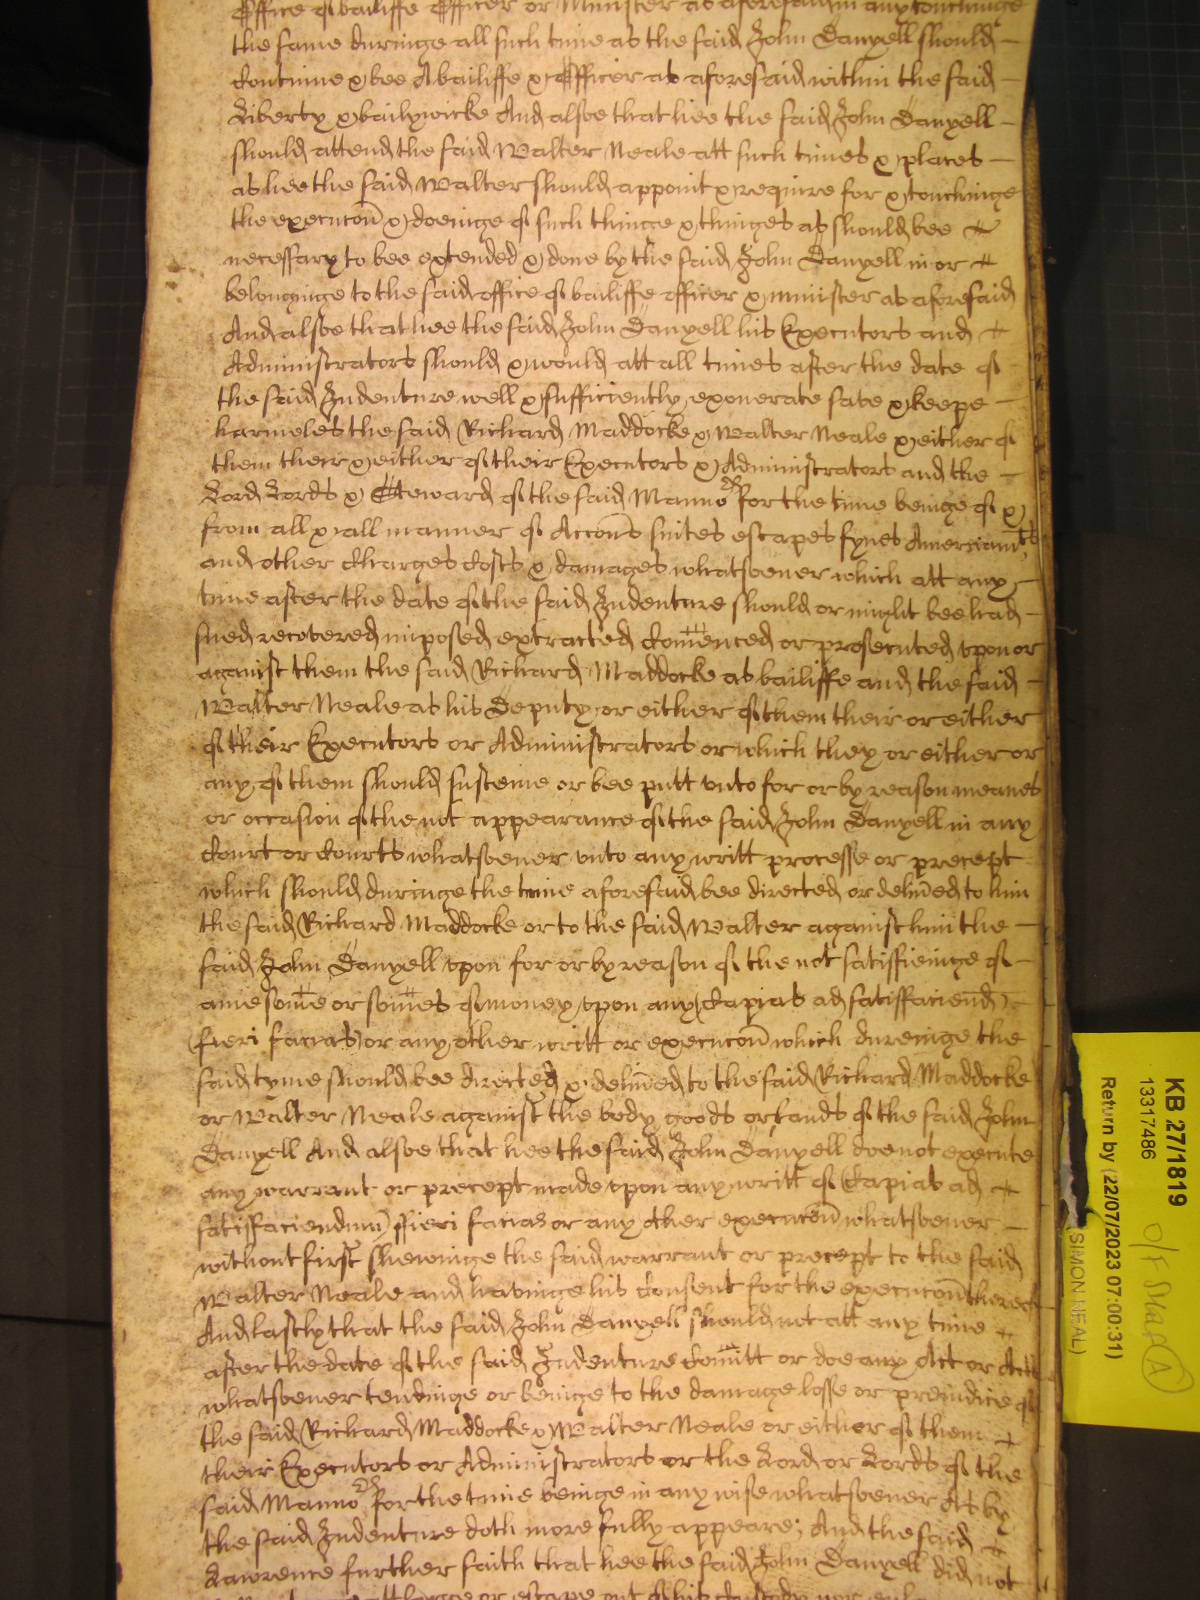 Office of bailiffe Officer or Minister as aforesaid in any touchinge
the same duringe all such time as the said John Danyell should
Continue & bee A bailiffe & Officer as aforesaid within the said
Liberty & bailywicke And alsoe that hee the said John Danyell
should attend the said Walter Neale att such times & places
as hee the said Walter should appoint & require for & touchinge
the execucon & doeinge of such thinge & thinges as should bee
necessary to bee extended & done by the said John Danyell in or
belonginge to the said office of bailiffe officer & minister as aforesaid
And alsoe that hee the said John Danyell his Executors and
Administrators should & would att all times after the date of
the said Indenture well & sufficiently exonerate save & keepe
harmeles the said Richard Maddocke & Walter Neale & either of
them their & either of their Executors & Administrators and the
Lord Lords & Steward of the said Mannor for the time beinge of &
from all & all manner of Accons suites escapes fynes Amerciamts
and other Charges Costs & damages whatsoever which att any
time after the date of the said Indenture should or might bee had
sued recovered imposed extracted Comenced or prosecuted upon or
against them the said Richard Maddocke as bailiffe and the said
Walter Neale as his Deputy or either of them their or either
of their Executors or Administrators or which they or either or
any of them should susteine or bee putt unto for or by reason meanes
or occasion of the not appearance of the said John Danyell in any
Court or Courts whatsoever unto any writt processe or precept
which should duringe the time aforesaid bee directed or delived to him
the said Richard Maddocke or to the said Walter against him the
said John Danyell upon for or by reason of the not satisfieinge of
anie some or somes of money upon any (Capias ad satisfaciend)
(fieri facias) or any other writt or execucon which dureinge the
said tyme should bee directed & delived to the said Richard Maddocke
or Walter Neale against the body goods or lands of the said John
Danyell And alsoe that hee the said John Danyell doe not execute
any warrant or precept made upon any writt of (Capias ad
satisfaciendum) ffieri facias or any other execucon whatsoever
without first shewinge the said warrant or precept to the said
Walter Neale and havinge his Consent for the execucon thereof
And lastly that the said John Danyell should not att any time
after the date of the said Indenture Comitt or doe any Act or Acts
whatsoever tendinge or beinge to the damage losse or prejudice of
the said Richard Maddocke & Walter Neale or either of them
their Executors or Administrators or the Lord or Lords of the
said Mannor for the time beinge in any wise whatsoever As by
the said Indenture doth more fully appeare; And the said
Lawrence further saith that hee the said John Danyell did not
or escape out of his Custody nor
KB 27/1819
13317486
Return by (22/07/2023 07:00:31)
(SIMON NEAL)
O/F Staf
A